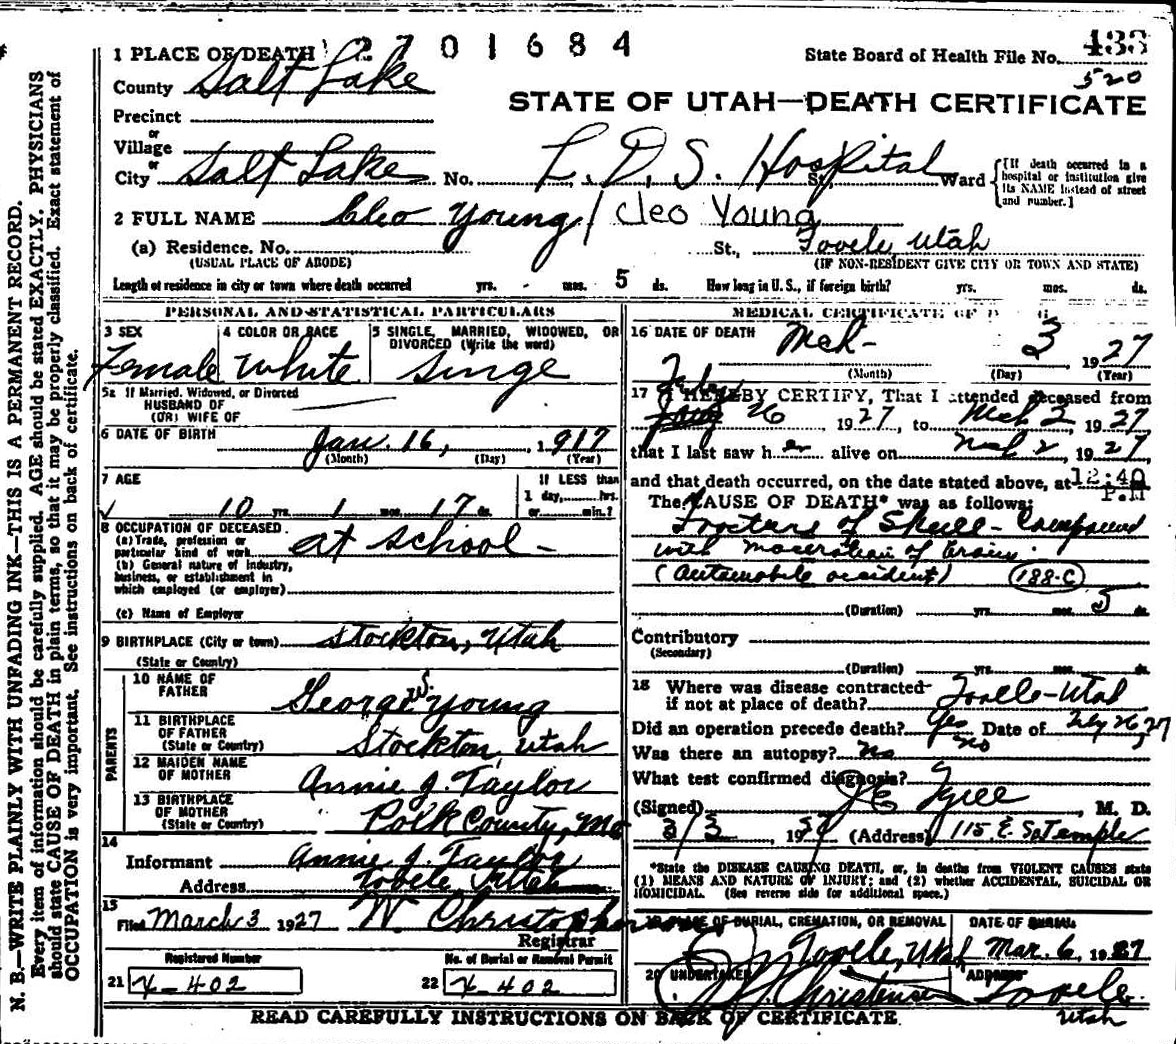 2701684
State Board of Health File No. 433
520
1 PLACE OF DEATH
County Salt Lake
STATE OF UTAH—DEATH CERTIFICATE
Precinct
or
Village
or
City Salt Lake No. L.D.S. Hospital St. Ward
[If death occurred in a hospital or institution give its NAME instead of street and number.]
2 FULL NAME Cleo Young / Cleo Young
(a) Residence. No. St., Tooele, Utah
(USUAL PLACE OF ABODE) (IF NON-RESIDENT GIVE CITY OR TOWN AND STATE)
Length of residence in city or town where death occurred yrs. mos. 5 ds. How long in U. S., if foreign birth? yrs. mos. ds.
PERSONAL AND STATISTICAL PARTICULARS
3 SEX Female
4 COLOR OR RACE White
5 SINGLE, MARRIED, WIDOWED, OR DIVORCED (Write the word) Singe
5a If Married, Widowed, or Divorced
HUSBAND OF
(OR) WIFE OF
6 DATE OF BIRTH Jan. 16, 1917
(Month) (Day) (Year)
7 AGE 10 yrs. 1 mos. 17 ds.
If LESS than
1 day, hrs.
or min.?
8 OCCUPATION OF DECEASED
(a) Trade, profession or
particular kind of work at school
(b) General nature of industry,
business, or establishment in
which employed (or employer)
(c) Name of Employer
9 BIRTHPLACE (City or town) Stockton, Utah
(State or Country)
PARENTS
10 NAME OF FATHER George W. Young
11 BIRTHPLACE OF FATHER (State or Country) Stockton, Utah
12 MAIDEN NAME OF MOTHER Annie J. Taylor
13 BIRTHPLACE OF MOTHER (State or Country) Polk County, Mo
14
Informant Annie J. Taylor
Address Tooele Utah
15
Filed March 3 1927 W Christopherson
Registrar
Registered Number
21 X-402
No. of Burial or Removal Permit
22 X-402
MEDICAL CERTIFICATE OF D H
16 DATE OF DEATH Mch 3 1927
(Month) (Day) (Year)
17 I HEREBY CERTIFY, That I attended deceased from
Feby 26 1927, to Mch 2, 1927
that I last saw her alive on Mch 2, 1927,
and that death occurred, on the date stated above, at 12:40 P.M
The CAUSE OF DEATH* was as follows:
Fracture of Skull - Compound
with maceration of brain.
(Automobile accident) 188-C
(Duration) yrs. mos. 5 ds.
Contributory
(Secondary)
(Duration) yrs. mos. ds.
18 Where was disease contracted
if not at place of death? Tooele-Utah
Did an operation precede death? Yes Date of Feby 26, 27
Was there an autopsy? No No
What test confirmed diagnosis?
(Signed) J C Tyree M. D.
3/3 1927 (Address) 115 E. S. Temple
*State the DISEASE CAUSING DEATH, or, in deaths from VIOLENT CAUSES state
(1) MEANS AND NATURE OF INJURY; and (2) whether ACCIDENTAL, SUICIDAL OR
HOMICIDAL. (See reverse side for additional space.)
19 PLACE OF BURIAL, CREMATION, OR REMOVAL Tooele, Utah
DATE OF BURIAL Mar. 6, 1927
20 UNDERTAKER Christensen
ADDRESS Tooele Utah
READ CAREFULLY INSTRUCTIONS ON BACK OF CERTIFICATE
N. B.—WRITE PLAINLY WITH UNFADING INK—THIS IS A PERMANENT RECORD.
Every item of information should be carefully supplied. AGE should be stated EXACTLY. PHYSICIANS
should state CAUSE OF DEATH in plain terms, so that it may be properly classified. Exact statement of
OCCUPATION is very important. See instructions on back of certificate.